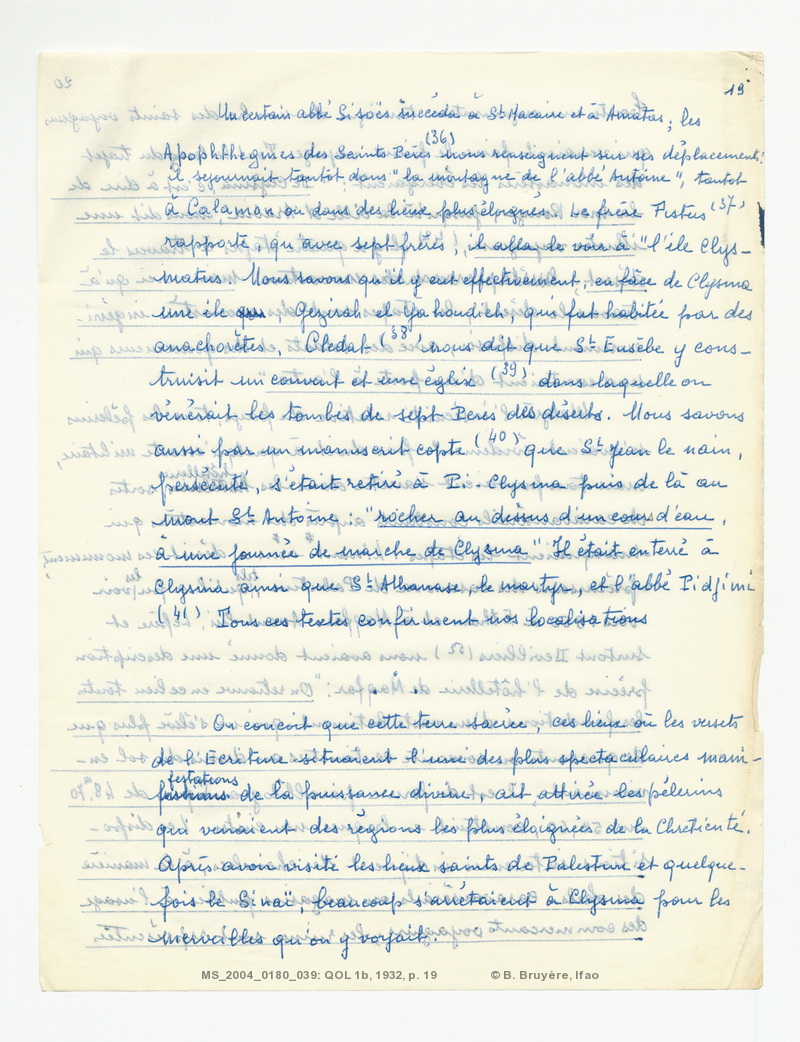 19
Un certain abbé Sisoës succéda à St Macaire et à Amatas ; les
Apophthegmes des Saints Pères (36) nous renseignent sur ses déplacements :
il séjournait tantôt dans "la montagne de l'abbé Antoine", tantôt
à Calamon ou dans des lieux plus éloignés. Le frère Pistus (37)
rapporte, qu'avec sept frères, il alla le voir à "l'île Clys-
matus". Nous savons qu'il y eut effectivement, en face de Clysma
une île , Gezirah el Yahoudieh, qui fut habitée par des
anachorètes, Cledat (38) nous dit que St Eusèbe y cons-
truisit un couvent et une église (39) dans laquelle on
vénérait les tombes de sept Pères des déserts. Nous savons
aussi par un manuscrit copte (40) que St Jean le nain,
persécuté, s'était retiré à Pi-Clysma puis de là au
mont St Antoine : "rocher au dessus d'un cours d'eau,
à une journée de marche de Clysma" Il était enterré à
Clysma ainsi que St Athanase, le martyr, et l'abbé Pidjimi
(41) Tous ces textes confirment nos localisations
On conçoit que cette terre sacrée, ces lieux où les versets
de l'Ecriture situaient l'une des plus spectaculaires mani-
festations
de la puissance divine, ait attirée les pélerins
qui venaient des régions les plus éloignées de la Chretienté.
Après avoir visité les lieux saints de Palestine et quelque-
fois le Sinaï, beaucoup s'arrêtaient à Clysma pour les
merveilles qu'on y voyait.
MS_2004_0180_039: QOL 1b, 1932, p. 19 © B. Bruyère, Ifao